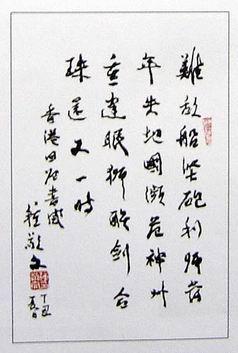 難敌船堅砲利師當
年失地國瀕危神州
重建眠獅醒劍合
珠還又一時
香港回归書感
鍾敬文
丁丑